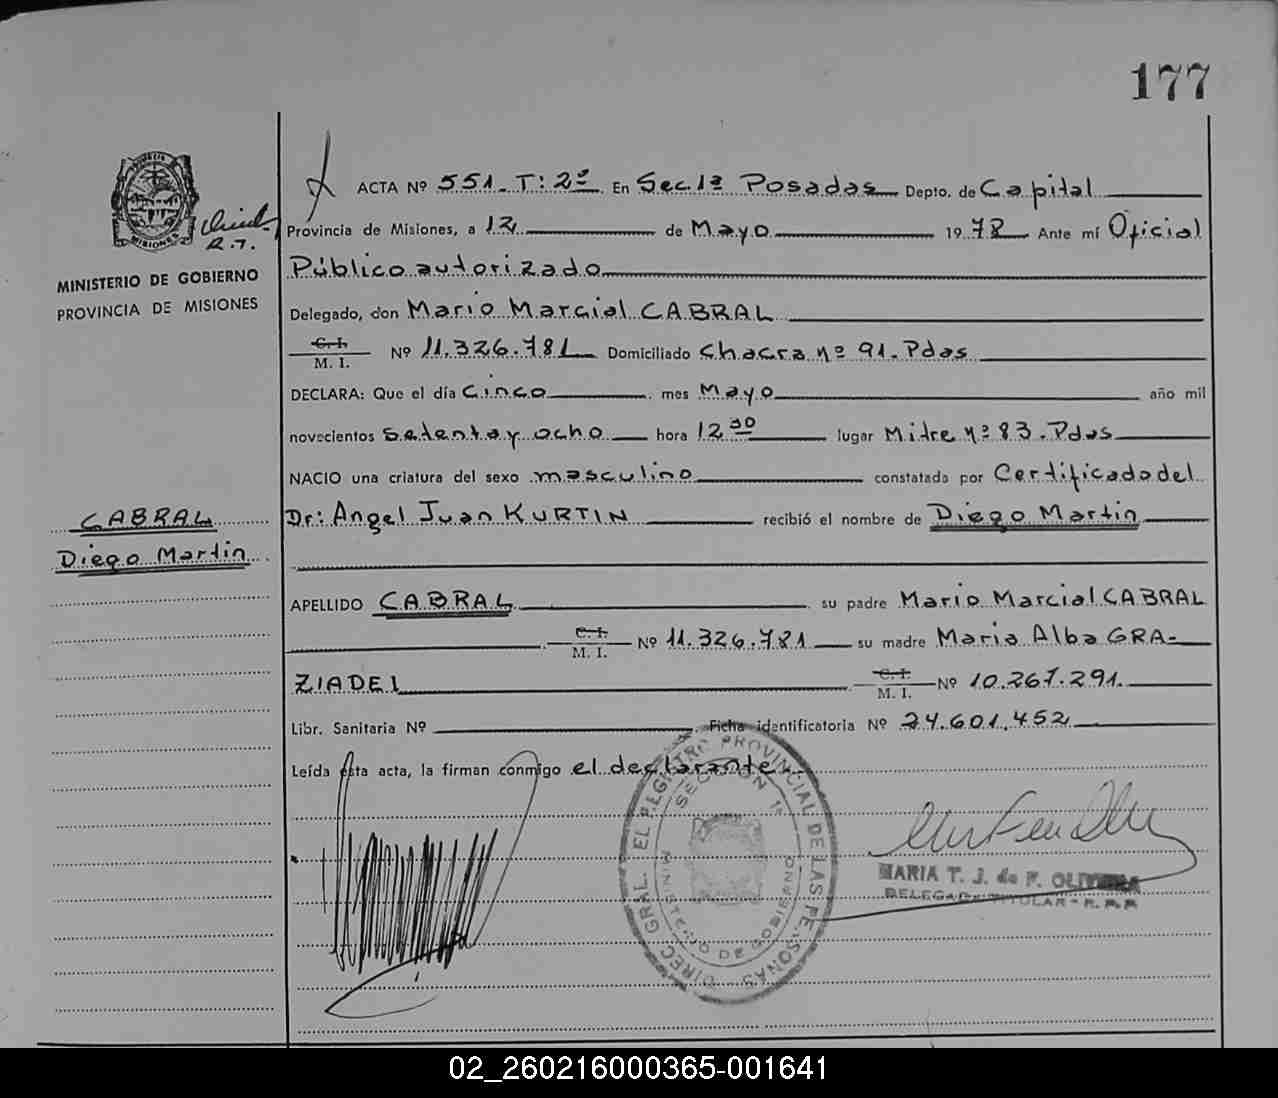 177
ACTA Nº 551. T: 2º En Sec. 1ª Posadas Depto. de Capital
Provincia de Misiones, a 12 de Mayo 1978 Ante mí Oficial
Público autorizado
Delegado, don Mario Marcial CABRAL
C. I.
M. I. Nº 11.326.781 Domiciliado Chacra nº 91. Pdas
DECLARA: Que el día Cinco mes Mayo año mil
novecientos Setenta y ocho hora 12 30 lugar Mitre nº 83. Pdas
NACIO una criatura del sexo masculino constatada por Certificado del
Dr: Angel Juan KURTIN recibió el nombre de Diego Martin
APELLIDO CABRAL su padre Mario Marcial CABRAL
C. I.
M. I. Nº 11.326.781 su madre Maria Alba GRA-
ZIADEI C. I.
M. I. Nº 10.267.291.
Libr. Sanitaria Nº Ficha identificatoria Nº 24.601.452
Leída esta acta, la firman conmigo el declarante.
MISIONES
MINISTERIO DE GOBIERNO
PROVINCIA DE MISIONES
CABRAL
Diego Martin
DIREC. GRAL. EL REGISTRO PROVINCIAL DE LAS PERSONAS
SECCION 1ª
MINISTERIO DE GOBIERNO
MARIA T. J. de F. OLIVEIRA
DELEGADA TITULAR - R. P. P.
02_260216000365-001641